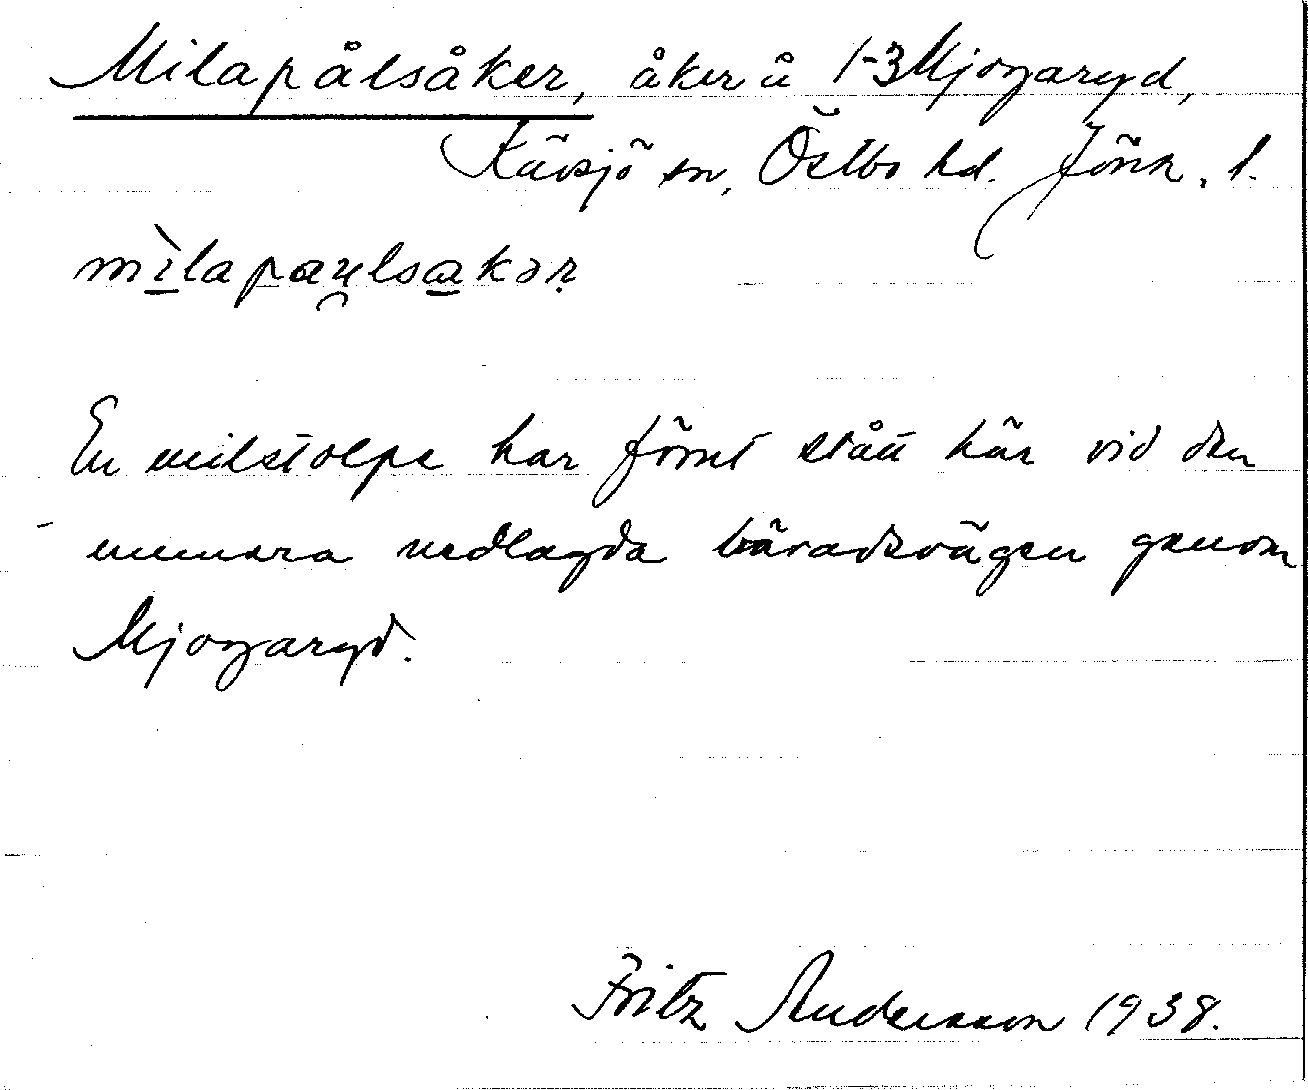 Milapålsåker, åker å 1-3 Mjogaryd,
Kävsjö sn, Östbo hd. Jönk. l.
En milstolpe har förut stått här vid den
numera nedlagda häradsvägen genom
Mjogaryd.
Fritz Andersson 1938.